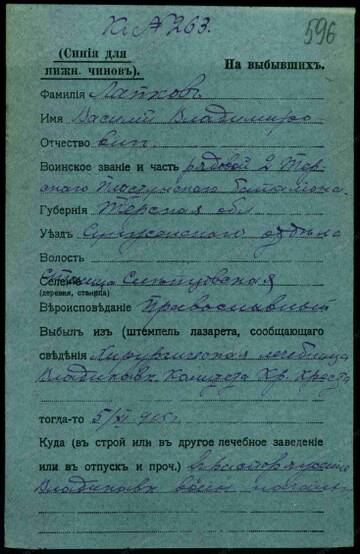 К № 263.
596
(Синія для
нижн. чиновъ).
На выбывшихъ.
Фамилія Лапковъ
Имя Василій Владиміро-
Отчество вич.
Воинское званіе и часть рядовой 2 Тер-
скаго Пластунскаго баталіона
Губернія Терская обл
Уѣздъ Сунженскаго отдѣла
Волость
Селеніе Станица
(деревня, станица)
Вѣроисповѣданіе Православный
Выбылъ изъ (штемпель лазарета, сообщающаго
свѣдѣнія Хирургическая лечебница
Владикавк. Комитета Кр. Креста
тогда-то 5/XI 915 г.
Куда (въ строй или въ другое лечебное заведеніе
или въ отпускъ и проч.) въ распоряженіе
Владикавк воин началь